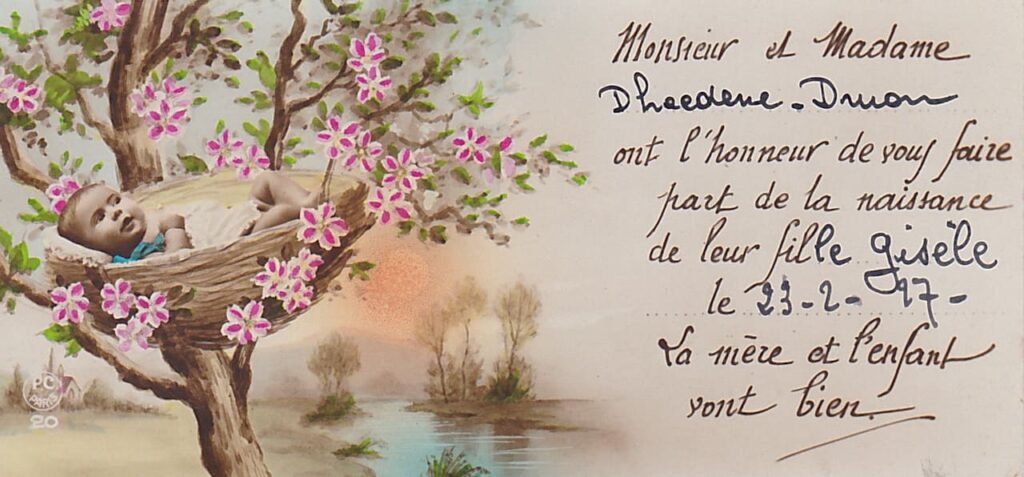 Monsieur et Madame
Dhaedene - Druon
ont l'honneur de vous faire
part de la naissance
de leur fille Gisèle
le 23-2-47-
La mère et l'enfant
vont bien.
PC
PARIS
20